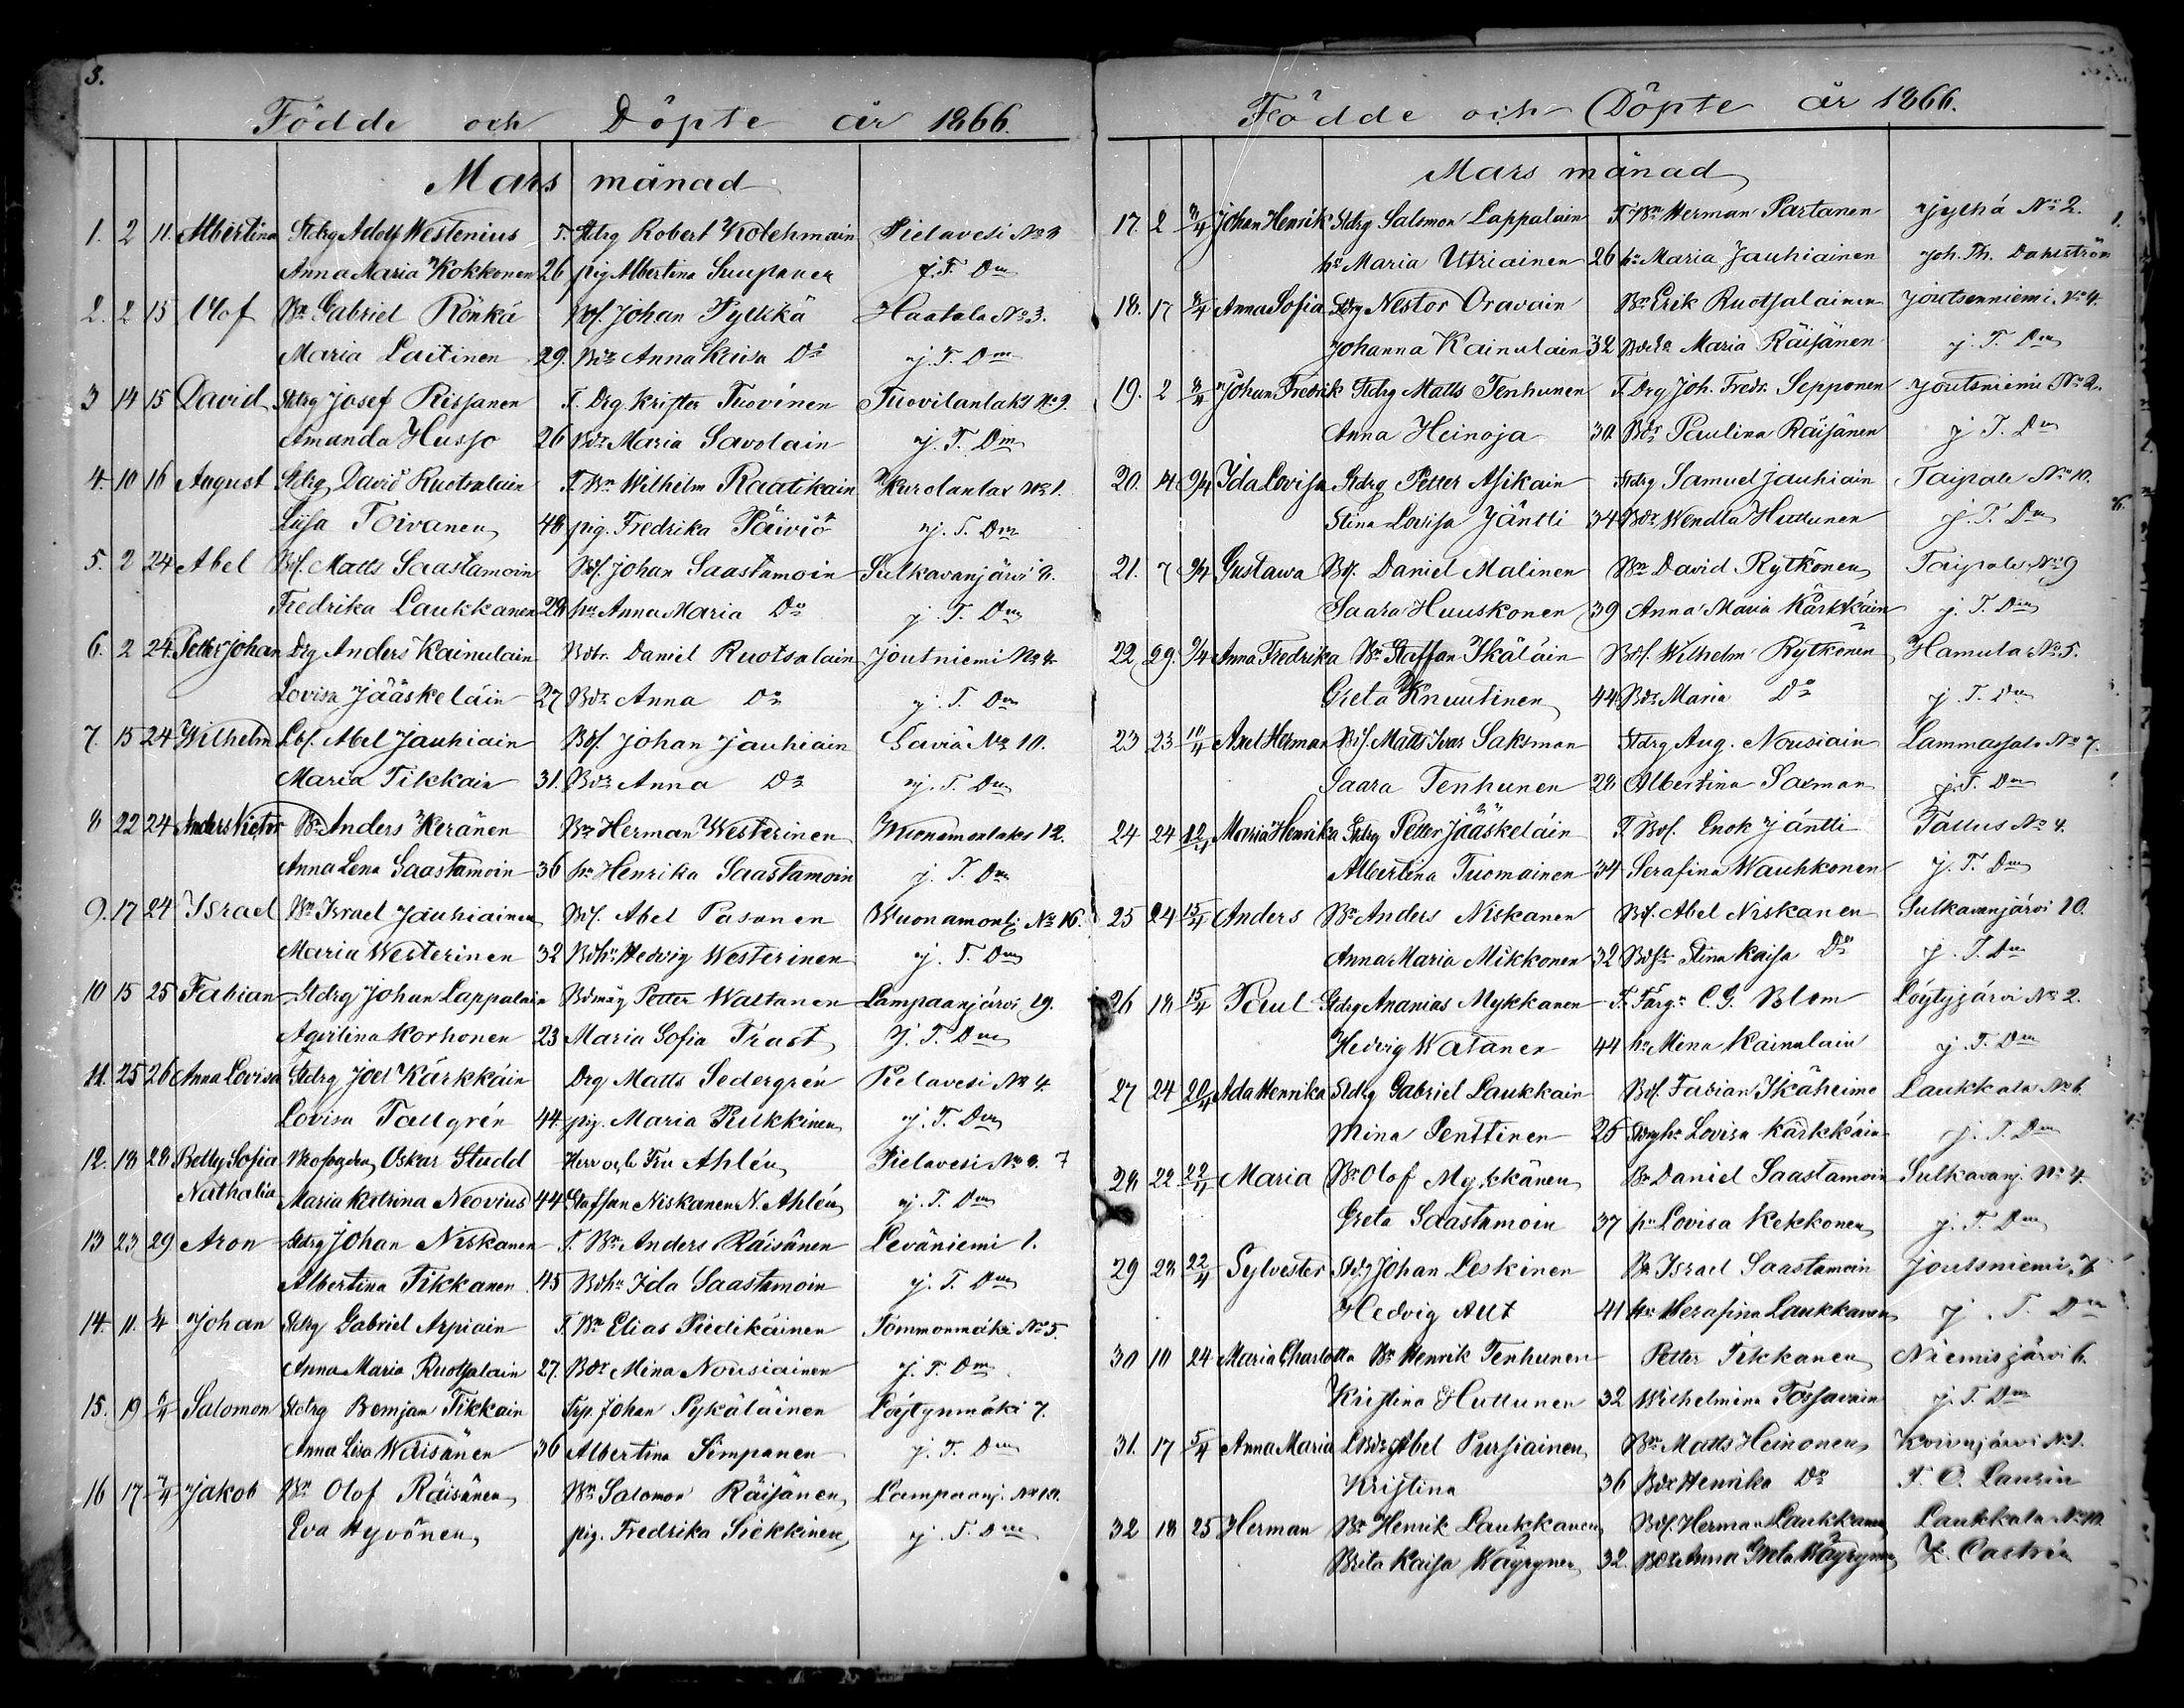 3.
Födde och Döpte år 1866.
Mars månad
1. 2 11. Albertina Stdrg Adolf Westenius T. Stdrg Robert Kolehmain Pielavesi No 8
Anna Maria Kokkonen 26 pig Albertina Suuponen j. T. Dm
2. 2 15 Olof Bn Gabriel Rönkä Bdf. Johan Pyllikä Haatala No 3.
Maria Laitinen 29. Bdr Anna Kaisa Do j. T. Dm
3 14 15 David Stdrg Josef Rissanen T. Drg Krister Tuovinen Tuovilanlaks No 9.
Amanda Husso 26 Bdr Maria Savolain j. T. Dm
4. 10 16 August Stdrg David Ruotsalain T. Bn Wilhelm Raatikain Kurolanlax No 1.
Liisa Toivanen 48 pig. Fredrika Päiviö j. T. Dm
5. 2 24 Abel Bdf. Matts Saastamoin Bdf. Johan Saastamoin Sulkavanjärvi 8.
Fredrika Laukkanen 28 hu Anna Maria Do j. T. Dm
6. 2 24. Petter Johan Drg Anders Kainulain Bdbr. Daniel Ruotsalain Joutniemi No 4.
Lovisa Jääskeläin 27 Bdr Anna Do j. T. Dm
7. 15 24 Wilhelm Lbf. Abel Jauhiain Bdf Johan Jauhiain Saviä No 10.
Maria Tikkain 31. Bdr Anna Do j. T. Dm
8 22 24 Anders Victor Bn Anders Keränen Bn Herman Westerinen Wuonamonlaks 12.
Anna Lena Saastamoin 36 hu Henrika Saastamoin j. T. Dm
9. 17 24 Israel Bn Israel Jauhiainen Bdf. Abel Pasonen Wuonamonl. No 16.
Maria Westerinen 32 Bdhu Hedvig Westerinen j. T. Dm
10 15 25 Fabian Stdrg Johan Lappalain Bdmåg Petter Waltanen Lampaanjärvi 19.
Agirlina Korhonen 23 Maria Sofia Trast j. T. Dm
11. 25 26 Anna Lovisa Stdrg Joel Kärkkäin Drg Matts Sedergrén Pielavesi No 4.
Lovisa Tallgrén 44. pig. Maria Pulkkinen j. T. Dm
12. 18 28 Betty Sofia Oskar Studd Herr och Fru Ahlén Pielavesi No 8. 7
Nathalia Maria Katrina Neovius 44 Staffan Niskanen N. Ahlén j. T. Dm
13 23 29 Aron Stdrg Johan Niskanen T. Bn Anders Räisänen Leväniemi 1.
Albertina Tikkanen 45 Bdhu Ida Saastamoin j. T. Dm
14. 11. 1/4 Johan Stdrg Gabriel Arpiain T. Bn Elias Piedikäinen Tommonmäki No 5.
Anna Maria Ruotsalain 27. Bdr Mina Nousiainen j. T. Dm
15. 19 6/4 Salomon Stdrg Bemjam Tikkain Johan Pykäläinen Löytynmäki 7.
Anna Lisa Wäisänen 36 Albertina Simpanen j. T. Dm
16 17 7/4 Jakob Bn Olof Räisänen Bn Salomon Räisänen Lampaanj. No 10.
Eva Hyvönen pig. Fredrika Siekkinen j. T. Dm
Födde och Döpte år 1866.
Mars månad
17. 2 8/4 Johan Henrik Stdrg Salomon Lappalain T. Bn Herman Partanen Jylhä No 2.
hu Maria Utriainen 26 hu Maria Jauhiainen Joh. Th. Dahlström
18. 17 8/4 Anna Sofia Stdrg Nestor Oravain Bn Erik Ruotsalainen Joutsenniemi No 4.
Johanna Kainulain 32 Bdhu Maria Räisänen j. T. Dm
19. 2 8/4 Johan Fredrik Stdrg Matts Tenhunen T. Drg Joh. Fredr. Sepponen Joutsniemi No 2.
Anna Heinoja 30. Bdr Paulina Räisänen j. T. Dm
20. 14. 9/4 Ida Lovisa Stdrg Petter Asikain Stdrg Samuel Jauhiain Taipale No 10.
Stina Lovisa Jäntti 34 Bdr Wendla Huttunen j. T. Dm
21. 7 9/4 Gustawa Bdf. Daniel Malinen Bn David Rytkönen Taipale No 9
Saara Huuskonen 39 Anna Maria Kärkkäin j. T. Dm
22 29. 9/4 Anna Fredrika Bn Staffan Ikäläin Bdf. Wilhelm Rytkönen Hamula No 5.
Greta Knuutinen 44 Bdr Maria Do j. T. Dm
23 23 10/4 Axel Herman Bdf. Matts Ivar Saksman Stdrg Aug. Nousiain Lammassalo No 7.
Saara Tenhunen 28 Albertina Saxman j. T. Dm
24 24 12/4 Maria Henrika Stdrg Petter Jääskeläin T. Bdf. Enok Jäntti Tallus No 4.
Albertina Tuomainen 34 Serafina Wauhkonen j. T. Dm
25 24 15/4 Anders Bn Anders Niskanen Bdf. Abel Niskanen Sulkavanjärvi 10.
Anna Maria Mikkonen 32 Bdhu Stina Kaisa Do j. T. Dm
26 18 15/4 Paul Stdrg Ananias Mykkanen T. Färg. C. G. Blom Löytyjärvi No 2.
Hedvig Watanen 44 hu Mina Kainulain j. T. Dm
27 24 20/4 Ada Henrika Stdrg Gabriel Laukkain Bdf. Fabian Ikäheimo Laukkala No 6.
Mina Penttinen 25 Stdrghu Lovisa Kärkkäin j. T. Dm
28 22 22/4 Maria Bn Olof Mykkänen Bn Daniel Saastamoin Sulkavanj. No 4.
Greta Saastamoin 37 hu Lovisa Kekkonen j. T. Dm
29 28 22/4 Sylvester Stdrg Johan Leskinen Bn Israel Saastamoin Joutsniemi 7.
Hedvig Aut 41 hu Serafina Laukkanen j. T. Dm
30 10 24 Maria Charlotta Bn Henrik Tenhunen Petter Tikkanen Niemisjärvi 6.
Kristina Huttunen 32 Wilhelmina Torsavain j. T. Dm
31. 17 5/4 Anna Maria Abel Pursiainen Bn Matts Heinonen Koivujärvi No 1.
Kristina 36 Bdr Henrika Do F. O. Laurin
32 18 25 Herman Bn Henrik Laukkanen Bdf. Herman Laukkanen Laukkala No 10.
Brita Kaisa Wäyrynen 32. Bdr Anna Wäyrynen Z. Castrén